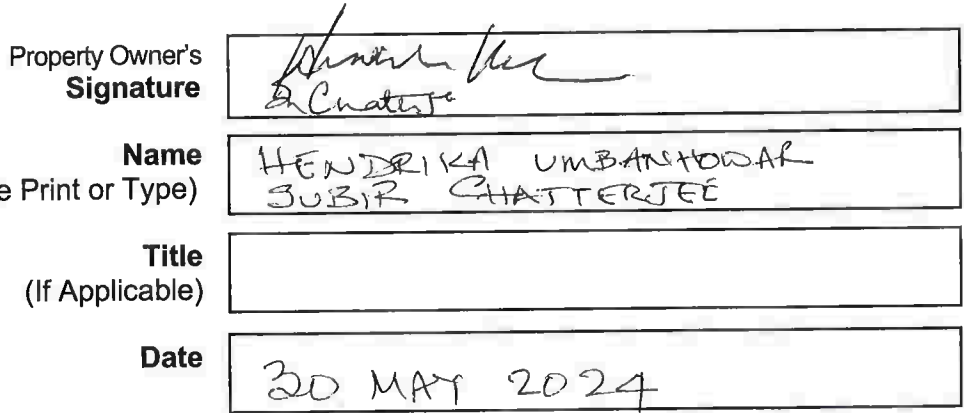 Property Owner's
Signature
S Chatterjee
Name
e Print or Type)
HENDRIKA UMBANHOWAR
SUBIR CHATTERJEE
Title
(If Applicable)
Date
30 MAY 2024